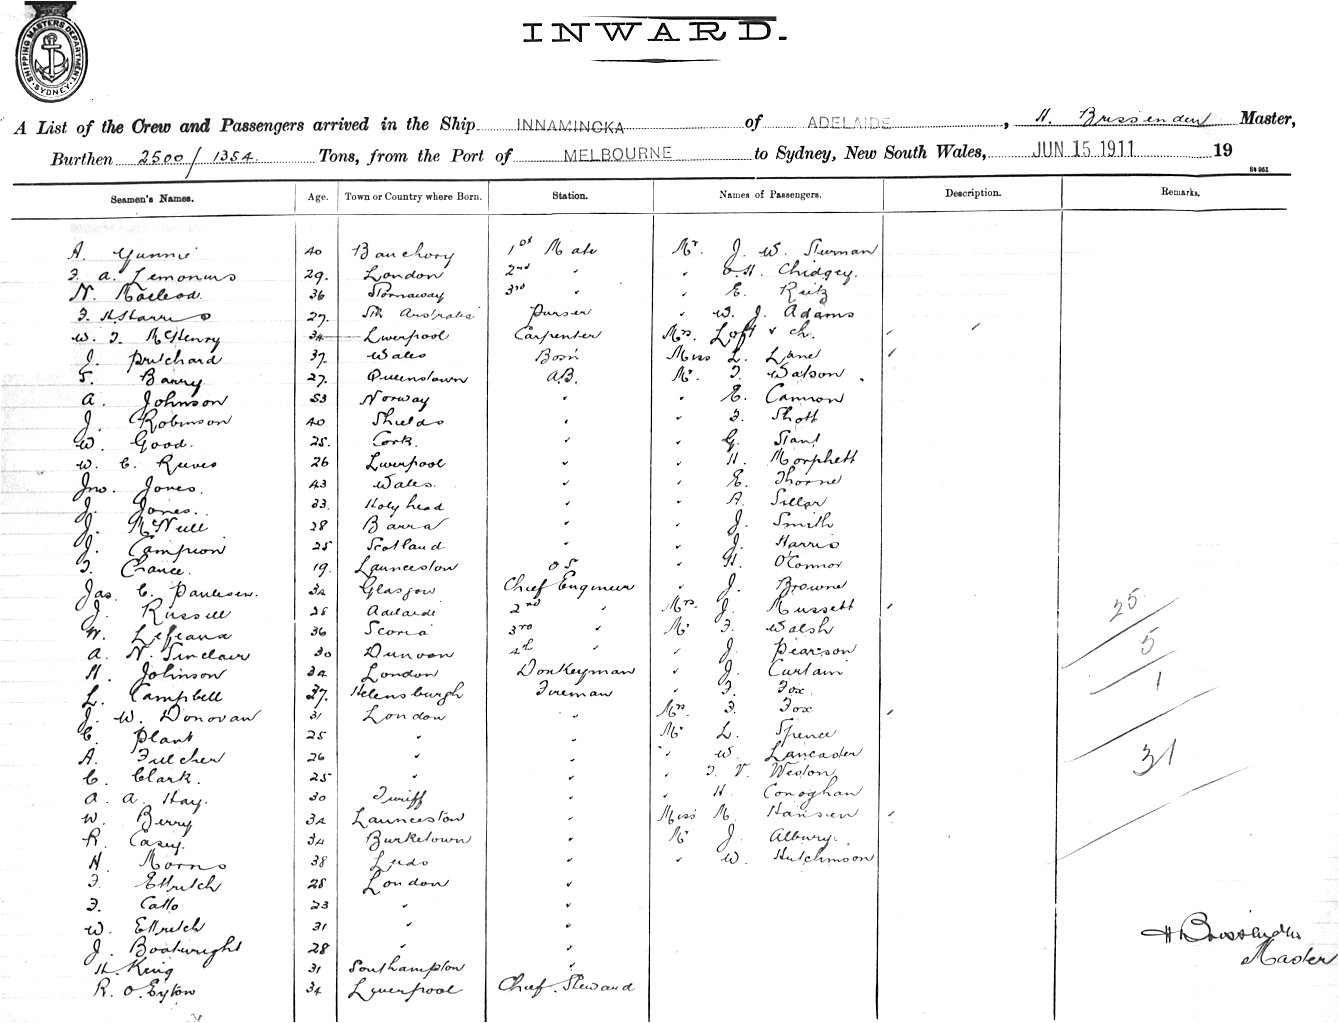 SHIPPING MASTERS DEPARTMENT SYDNEY
INWARD.
A List of the Crew and Passengers arrived in the Ship INNAMINCKA of ADELAIDE, H. Brissenden Master,
Burthen 2500/1354 Tons, from the Port of MELBOURNE to Sydney, New South Wales, JUN 15 1911 19
St 961
Seamen's Names. Age. Town or Country where Born. Station. Names of Passengers. Description. Remarks.
A. 40 Banchory 1st Mate Mr. J. W. Sturman
F. A. 29. London 2nd " " O. H. Chidgey.
N. Macleod. 36 Stornaway 3rd " " E. Reitz
F. H. Harris 27. Sth Australia Purser " W. J. Adams
W. F. McHenry 34 Liverpool Carpenter Mrs. Loft & ch.
J. Pritchard 37. Wales Bosn Miss L. Lane
T. Barry 27. Queenstown A.B. Mr. F. Watson
A. Johnson 53 Norway " " E. Cannon
J. Robinson 40 Shields " " F. Shott
W. Good. 25. Cork. " " G. Stant
W. C. Reeves 26 Liverpool " " H. Morphett
Jno. Jones. 43 Wales. " " E. Thorne
J. Jones. 33. Holyhead " " A. Sillar
J. McNeill 28 Barra " " J. Smith
J. Campion 25 Scotland " " J. Harris
F. Chance. 19. Launceston O S " H. O'Connor
Jas. C. Paulesen. 34 Glasgow. Chief Engineer " J. Browne
J. Russell 28 Adelaide 2nd " Mrs. J. Mussett
36 Scoria 3rd " Mr F. Walsh
A. N. Sinclair 30 Dunoon 4th " " J. Pearson
H. Johnson 34 London Donkeyman " J. Curtain
L. Campbell 37. Helensburgh Fireman " F. Fox.
J. W. Donovan 31 London " Mrs. F. Fox
C. Plant 25 " " Mr. L. Spence
A. Fulcher 26 " " " W. Lancaster
C. Clark. 25 " " " F. V. Weston
A. A. Hay. 30 Turriff " " H. Conoghan
W. Berry 34 Launceston " Miss M. Hansen
R. Casey. 34 Burketown " Mr J. Albury.
H. Morris 38 Leeds " " W. Hutchinson
F. Ettritch 28 London "
F. Catto 23 " "
W. Ettritch 31 " "
J. Boatwright 28 " "
H. King 31 Southampton "
R. O. Eyton 34 Liverpool Chief Steward
25
5
1
31
H Brissenden
Master